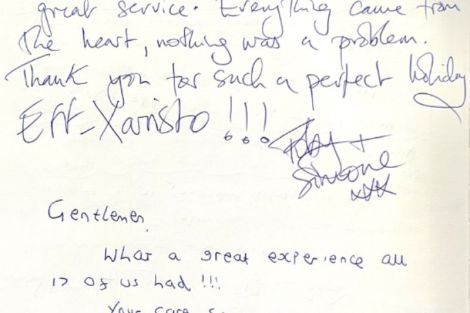 great service. Everything came from
the heart, nothing was a problem.
Thank you for such a perfect holiday
Eff-Xaristo !!!
+
Simone
xxx
Gentlemen,
What a great experience all
17 of us had !!!
Your care